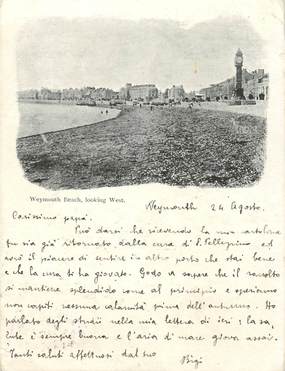 Weymouth Beach, looking West.
Weymouth 24 Agosto.
Carissimo papà.
Può darsi che ricevendo la mia cartolina
tu sia già ritornato dalla cura di S. Pellegrino ed
avrò il piacere di sentire in altro porto che stai bene
e che la cura ti ha giovato. Godo a sapere che il raccolto
si mantiene splendido come al principio e speriamo
non capiti nessuna calamità prima dell'autunno. Ho
parlato degli studii nella mia lettera di ieri; la sa-
lute è sempre buona e l'aria di mare giova assai.
Tanti saluti affettuosi dal tuo
Bigi